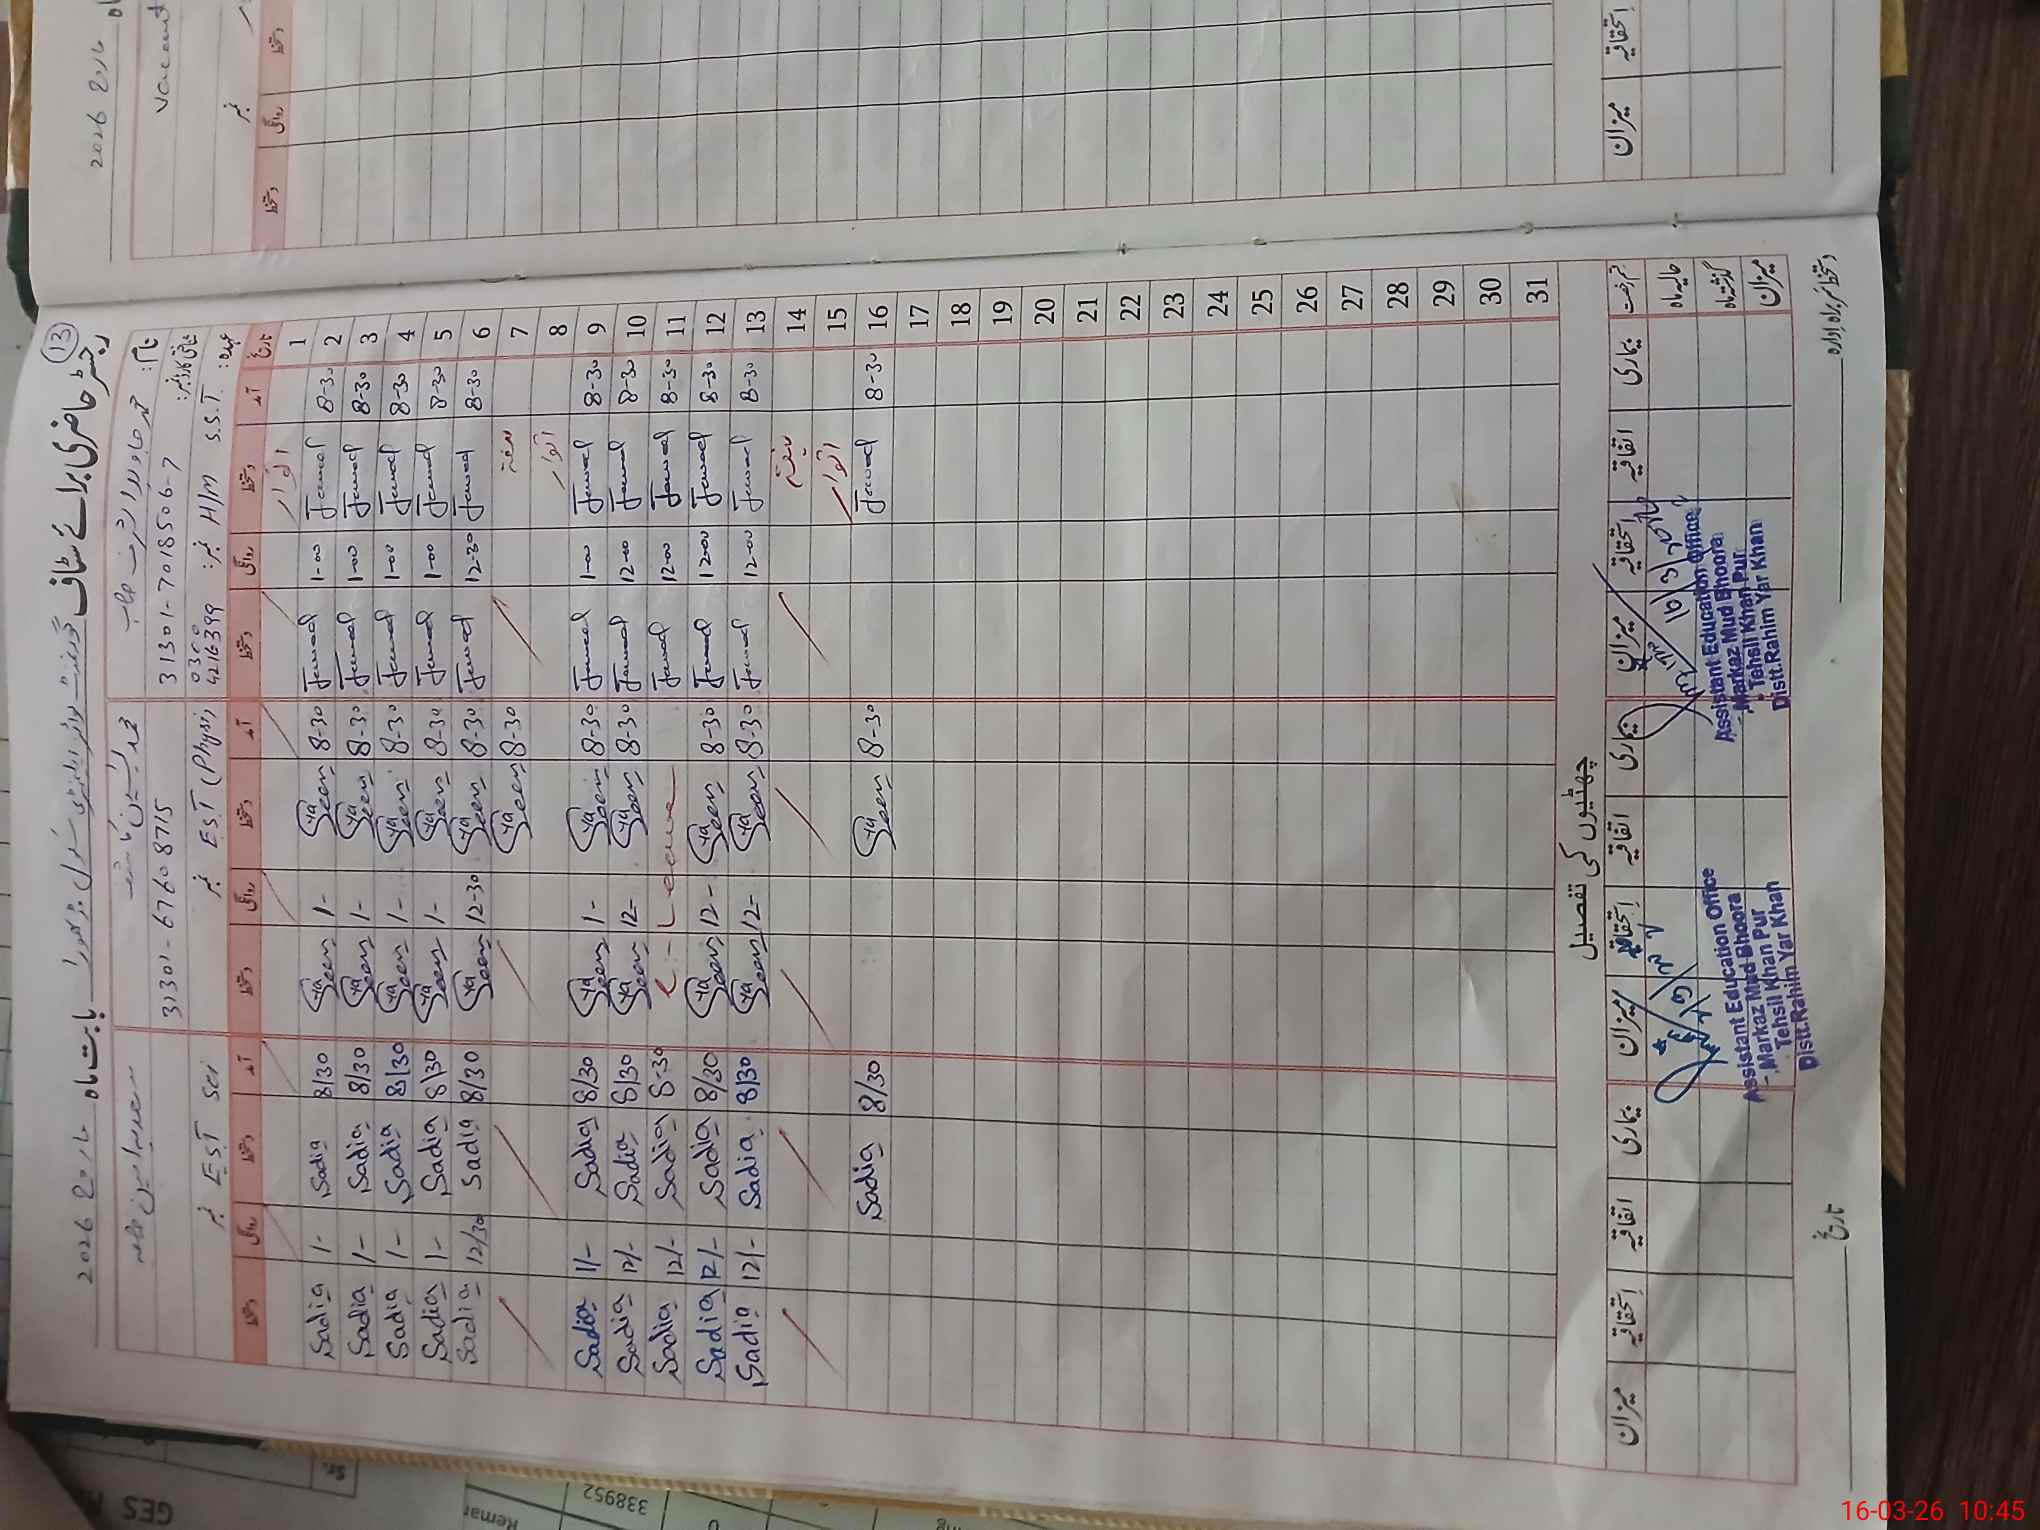 رجسٹر حاضری برائے سٹاف گورنمنٹ گرلز ایلیمنٹری سکول مڈ بھورا بابت ماہ مارچ 2026
13
نام:
شناختی کارڈ نمبر: 31301-7018506-7
31301-6760 8715
عہدہ: S.S.T H/M نمبر: 0300 4216399
EST (Physi) نمبر
EST Sci نمبر
تاریخ آمد دستخط روانگی دستخط آمد دستخط روانگی دستخط آمد دستخط روانگی دستخط
1 اتوار
2 8-30 1-00 8-30 Yaseen 1- Yaseen 8/30 Sadia 1- Sadia
3 8-30 1-00 8-30 Yaseen 1- Yaseen 8/30 Sadia 1- Sadia
4 8-30 1-00 8-30 Yaseen 1- Yaseen 8/30 Sadia 1- Sadia
5 8-30 1-00 8-30 Yaseen 1- Yaseen 8/30 Sadia 1- Sadia
6 8-30 12-30 8-30 Yaseen 12-30 Yaseen 8/30 Sadia 12/30 Sadia
7 ہفتہ 8-30 Yaseen
8 اتوار
9 8-30 1-00 8-30 Yaseen 1- Yaseen 8/30 Sadia 1/- Sadia
10 8-30 12-00 8-30 Yaseen 12- Yaseen 8/30 Sadia 12/- Sadia
11 8-30 12-00 Leave 8-30 Sadia 12/- Sadia
12 8-30 12-00 8-30 Yaseen 12- Yaseen 8/30 Sadia 12/- Sadia
13 8-30 12-00 8-30 Yaseen 12- Yaseen 8/30 Sadia 12/- Sadia
14 ہفتہ
15 اتوار
16 8-30 8-30 Yaseen 8/30 Sadia
17
18
19
20
21
22
23
24
25
26
27
28
29
30
31
چھٹیوں کی تفصیل
قسم رخصت بیماری اتفاقیہ استحقاقیہ میزان بیماری اتفاقیہ استحقاقیہ میزان بیماری اتفاقیہ استحقاقیہ میزان
حالیہ ماہ
گذشتہ ماہ
میزان
Assistant Education Office
Markaz Mud Bhoora
Tehsil Khan Pur
Distt.Rahim Yar Khan
Assistant Education Office
Markaz Mud Bhoora
Tehsil Khan Pur
Distt.Rahim Yar Khan
دستخط سربراہ ادارہ
تاریخ
مارچ 2026
Vaccant
نمبر
دستخط روانگی دستخط
استحقاقیہ میزان
GES
Sr.
338952
Remar
16-03-26 10:45